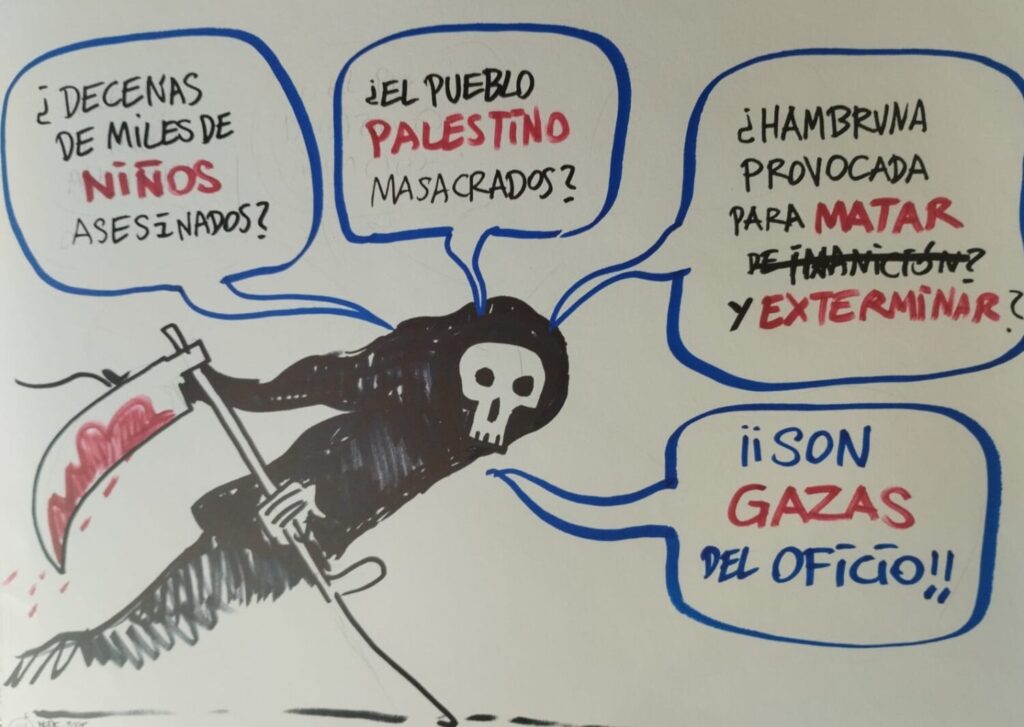 ¿DECENAS
DE MILES DE
NIÑOS
ASESINADOS?
¿EL PUEBLO
PALESTINO
MASACRADOS?
¿HAMBRUNA
PROVOCADA
PARA MATAR
DE INANICIÓN?
Y EXTERMINAR?
¡¡SON
GAZAS
DEL OFICIO!!